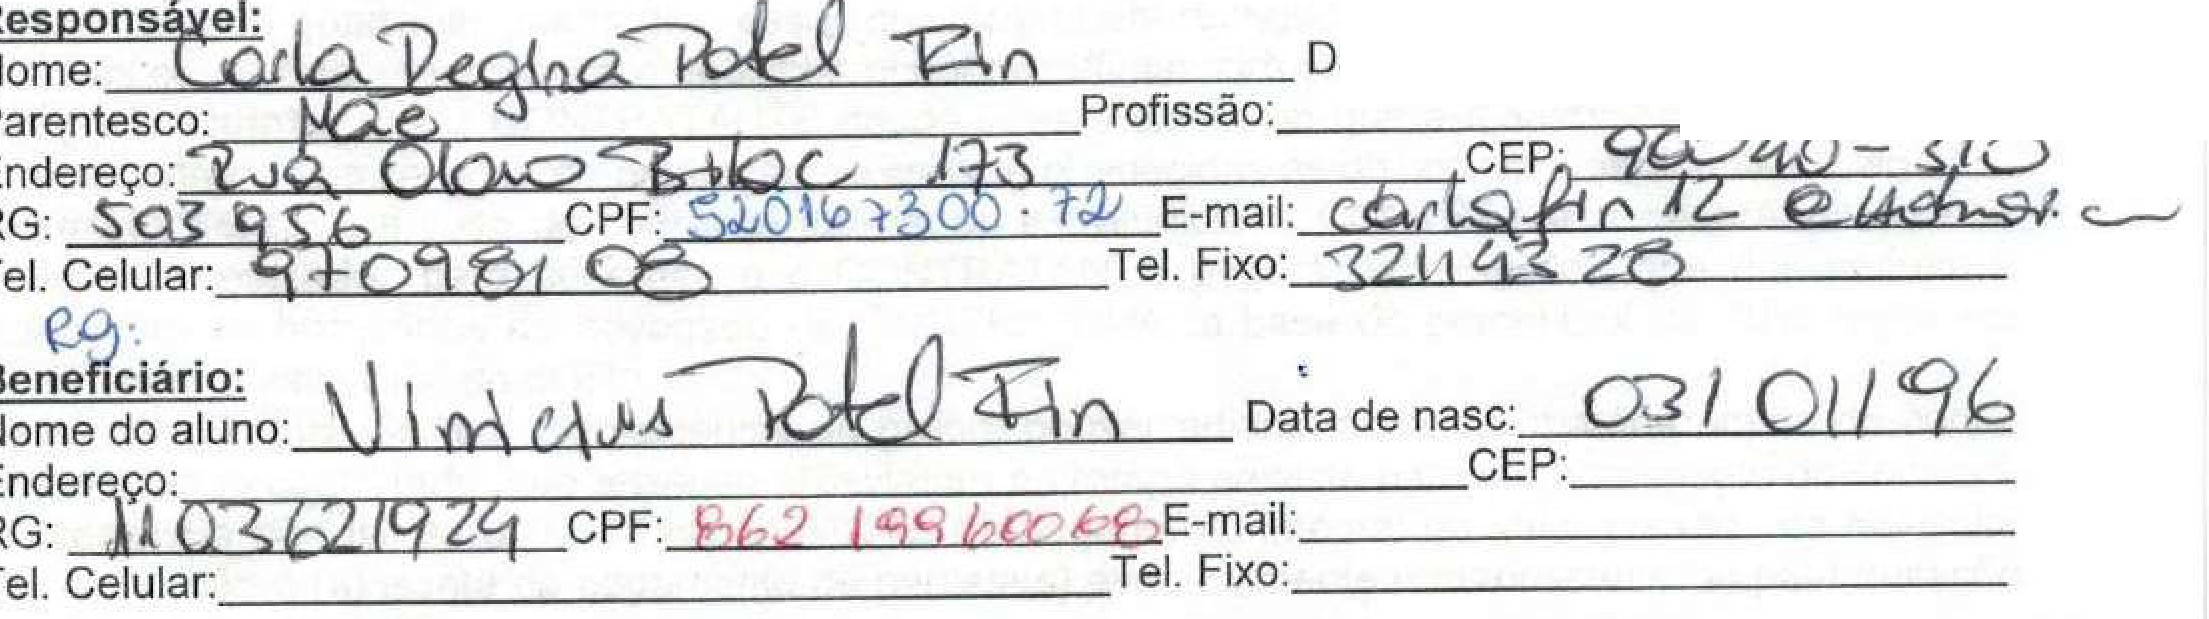 Responsável:
Nome: Carla Regina Potel Fin D
Parentesco: Mãe Profissão:
Endereço: Rua Olavo Bilac 173 CEP: 90040-310
RG: 503956 CPF: 520167300-72 E-mail: carlafin12@hotmail.
Tel. Celular: 97098108 Tel. Fixo: 32114328
RG:
Beneficiário:
Nome do aluno: Vinicius Potel Fin Data de nasc: 03/01/96
Endereço: CEP:
RG: 1103621924 CPF: 862 199 600 68 E-mail:
Tel. Celular: Tel. Fixo: